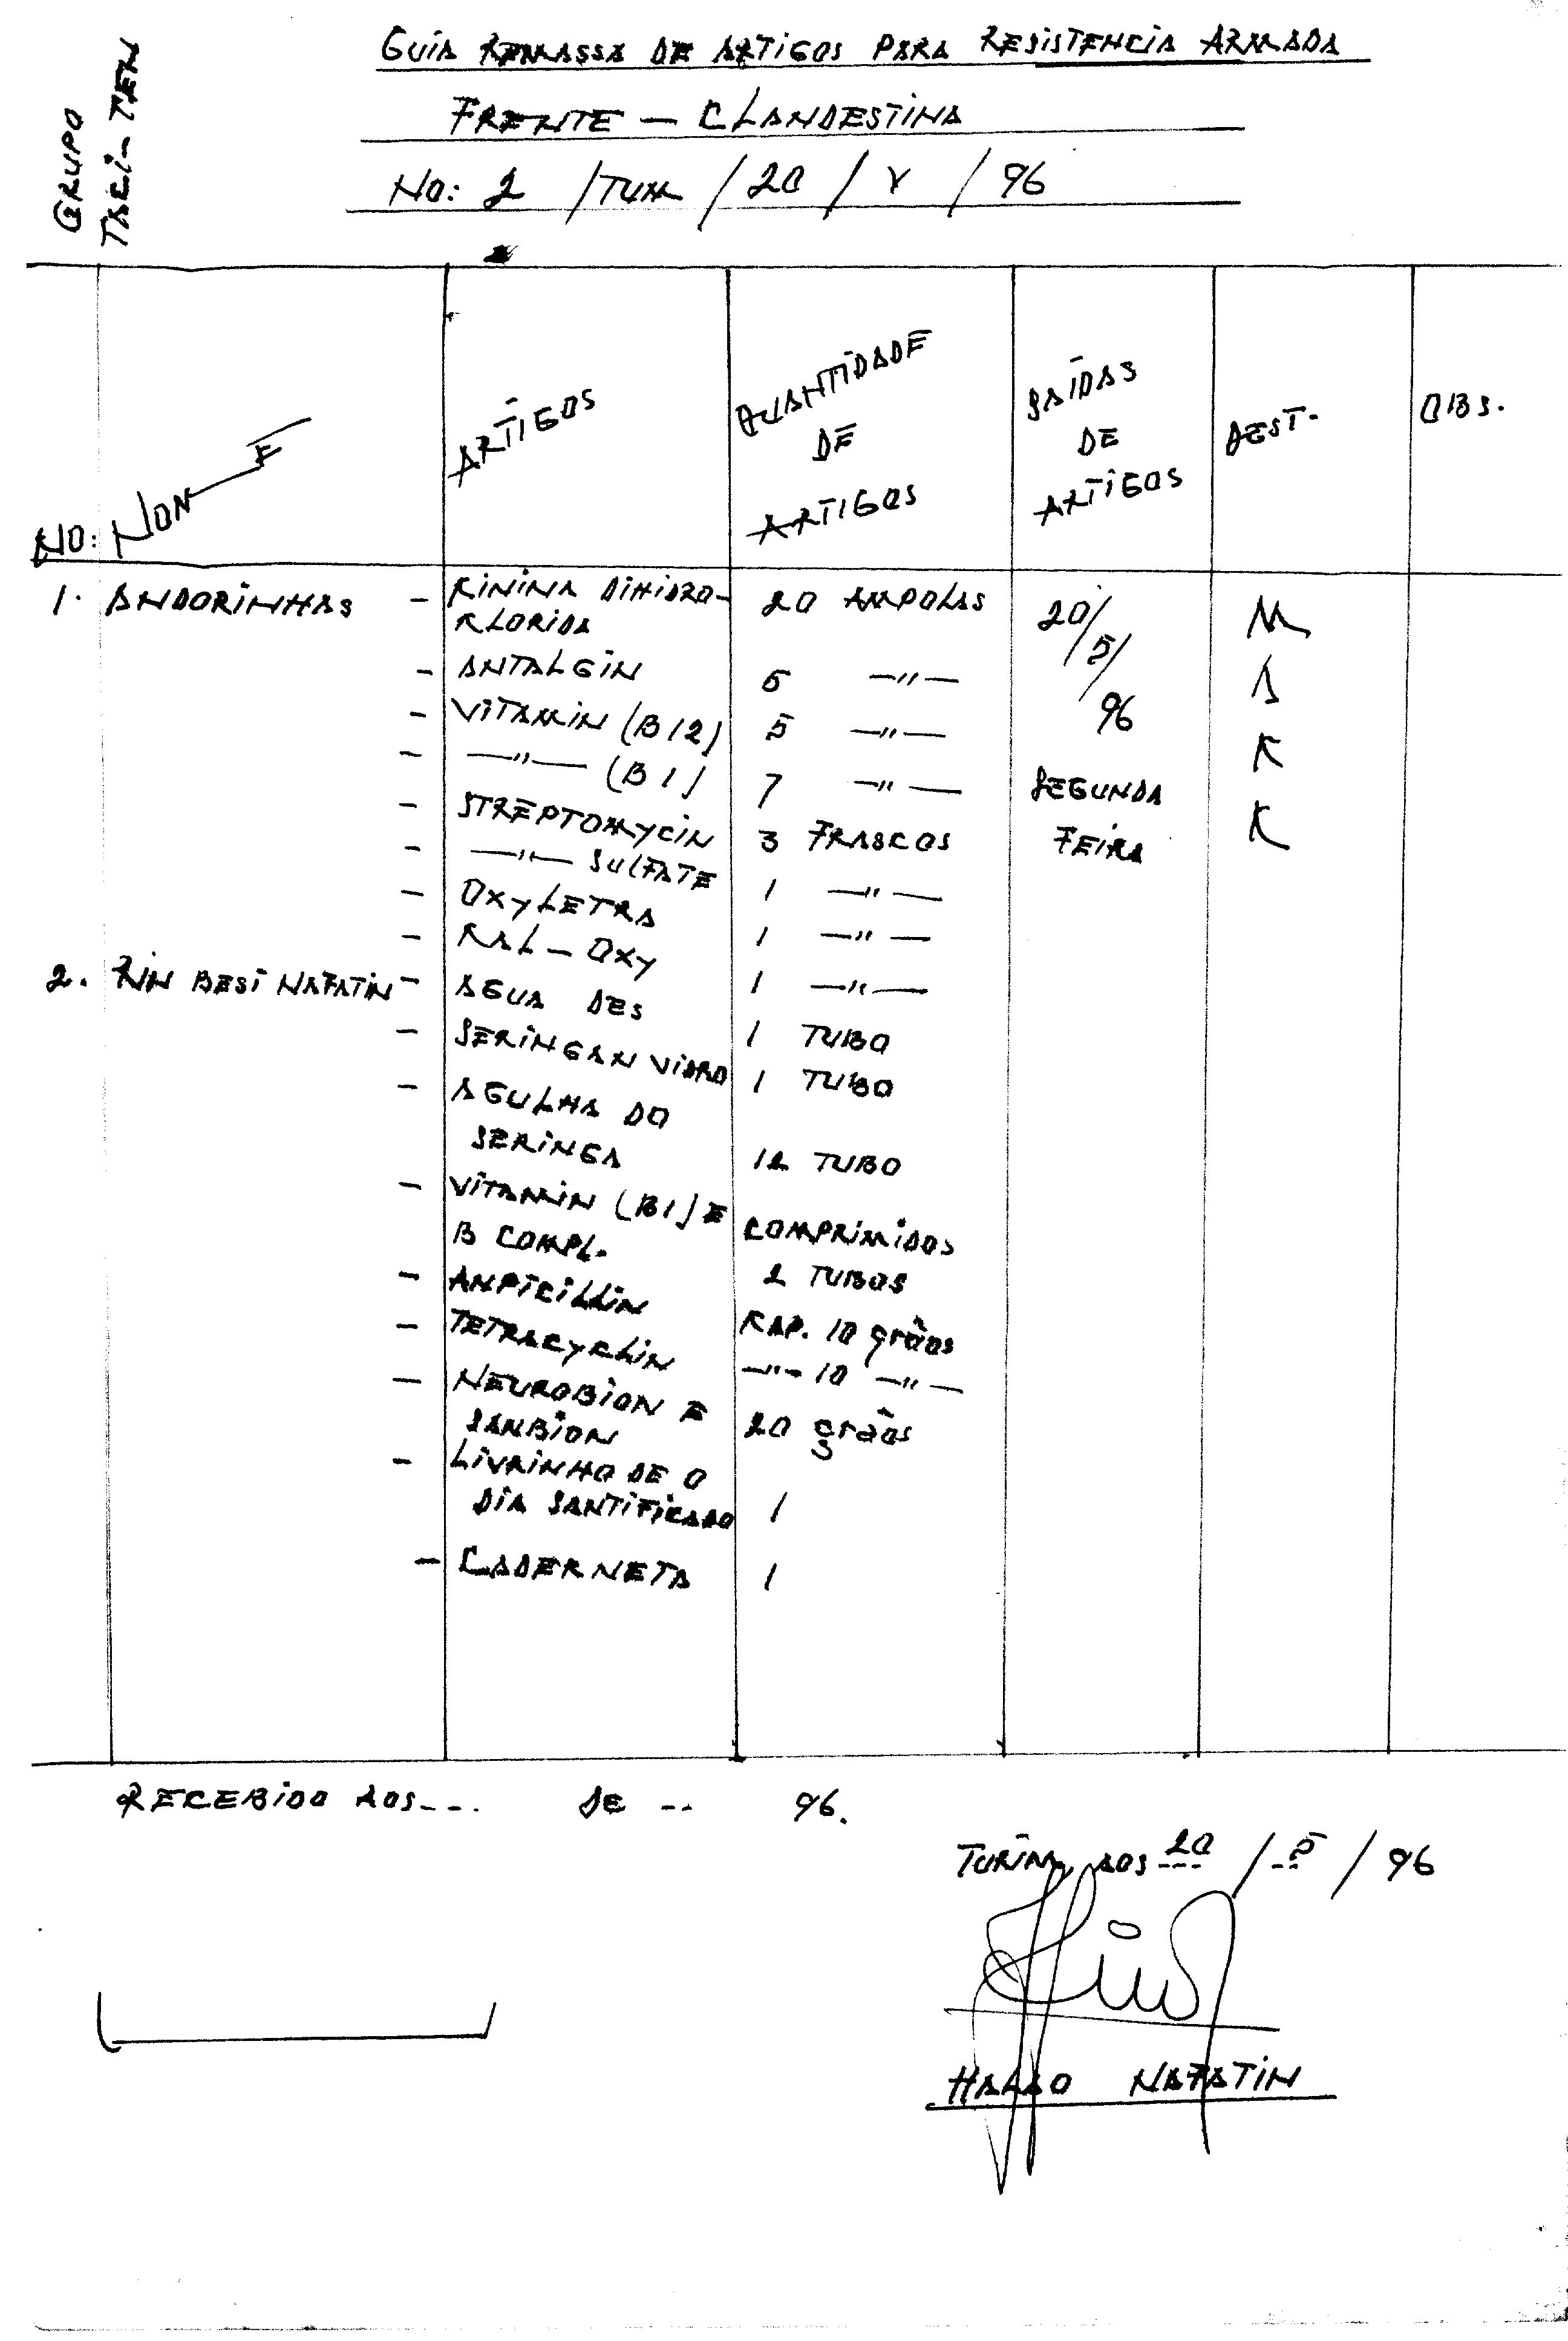 GRUPO
TARI-TEN
GUIA REMASSA DE ARTIGOS PARA RESISTENCIA ARMADA
FRENTE - CLANDESTINA
NO: 2 /TUM / 20 / V / 96
NO: NOME ARTIGOS QUANTIDADE DE ARTIGOS SAÍDAS DE ARTIGOS DEST. OBS.
1. ANDORINHAS - KININA DIHIDRO- 20 AMPOLAS 20/ M
KLORIDA 5/
- ANTALGIN 5 —"— A
- VITAMIN (B12) 5 —"— 96 K
- —"— (B1) 7 —"— SEGUNDA K
- STREPTOMYCIN 3 FRASCOS FEIRA
- —"— SULFATE 1 —"—
- OXYLETRA 1 —"—
- KAL-OXY 1 —"—
2. RIN BESI NAFATIN - AGUA DES 1 TUBO
- SERINGAN VIDRO 1 TUBO
- AGULHA DO
SERINGA 12 TUBO
- VITAMIN (B1) E COMPRIMIDOS
B COMPL. 2 TUBOS
- AMPICILLIN KAP. 10 grãos
- TETRACYCLIN —"— 10 —"—
- NEUROBION E 20 grãos
SANBION
- LIVRINHO DE O
DIA SANTIFICADO 1
- CADERNETA 1
RECEBIDO AOS --- DE -- 96.
TURIM, AOS 20 / 5 / 96
HALAO NAFATIN